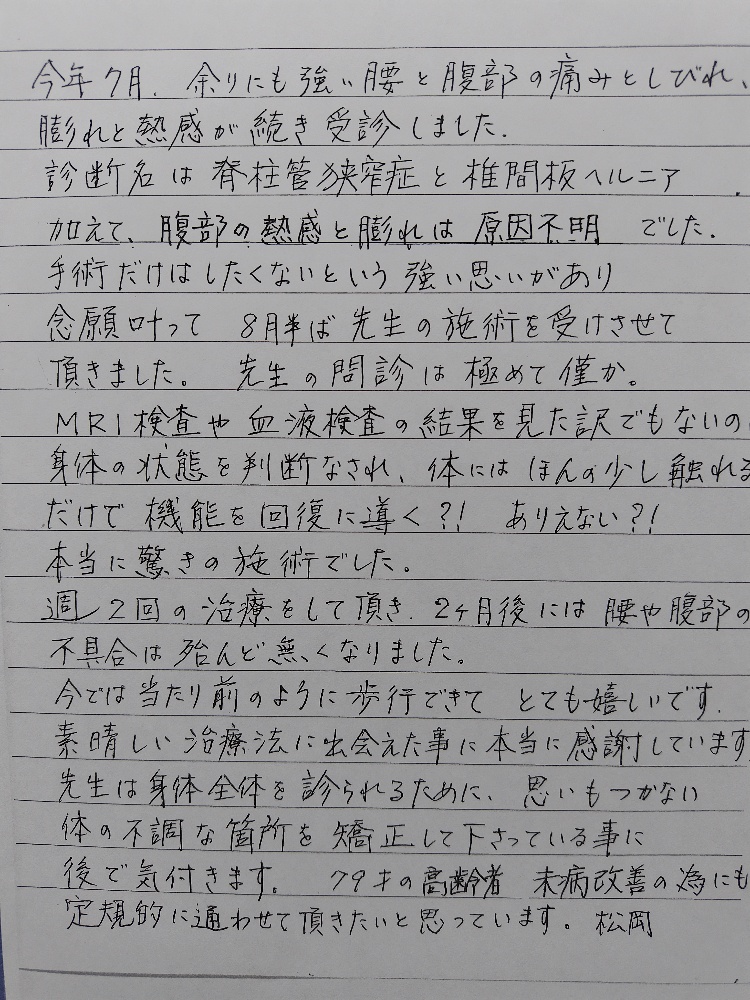 今年7月、余りにも強い腰と腹部の痛みとしびれ、
膨れと熱感が続き受診しました.
診断名は脊柱管狭窄症と椎間板ヘルニア
加えて、腹部の熱感と膨れは原因不明でした.
手術だけはしたくないという強い思いがあり
念願叶って 8月半ば先生の施術を受けさせて
頂きました。 先生の問診は極めて僅か。
MRI検査や血液検査の結果を見た訳でもないの
身体の状態を判断なされ、体にはほんの少し触れる
だけで機能を回復に導く?! ありえない?!
本当に驚きの施術でした。
週2回の治療をして頂き、2ヶ月後には腰や腹部の
不具合は殆んど無くなりました。
今では当たり前のように歩行できて とても嬉しいです.
素晴しい治療法に出会えた事に本当に感謝しています
先生は身体全体を診られるために、思いもつかない
体の不調な箇所を矯正して下さっている事に
後で気付きます。 79才の高齢者 未病改善の為にも
定規的に通わせて頂きたいと思っています。松岡